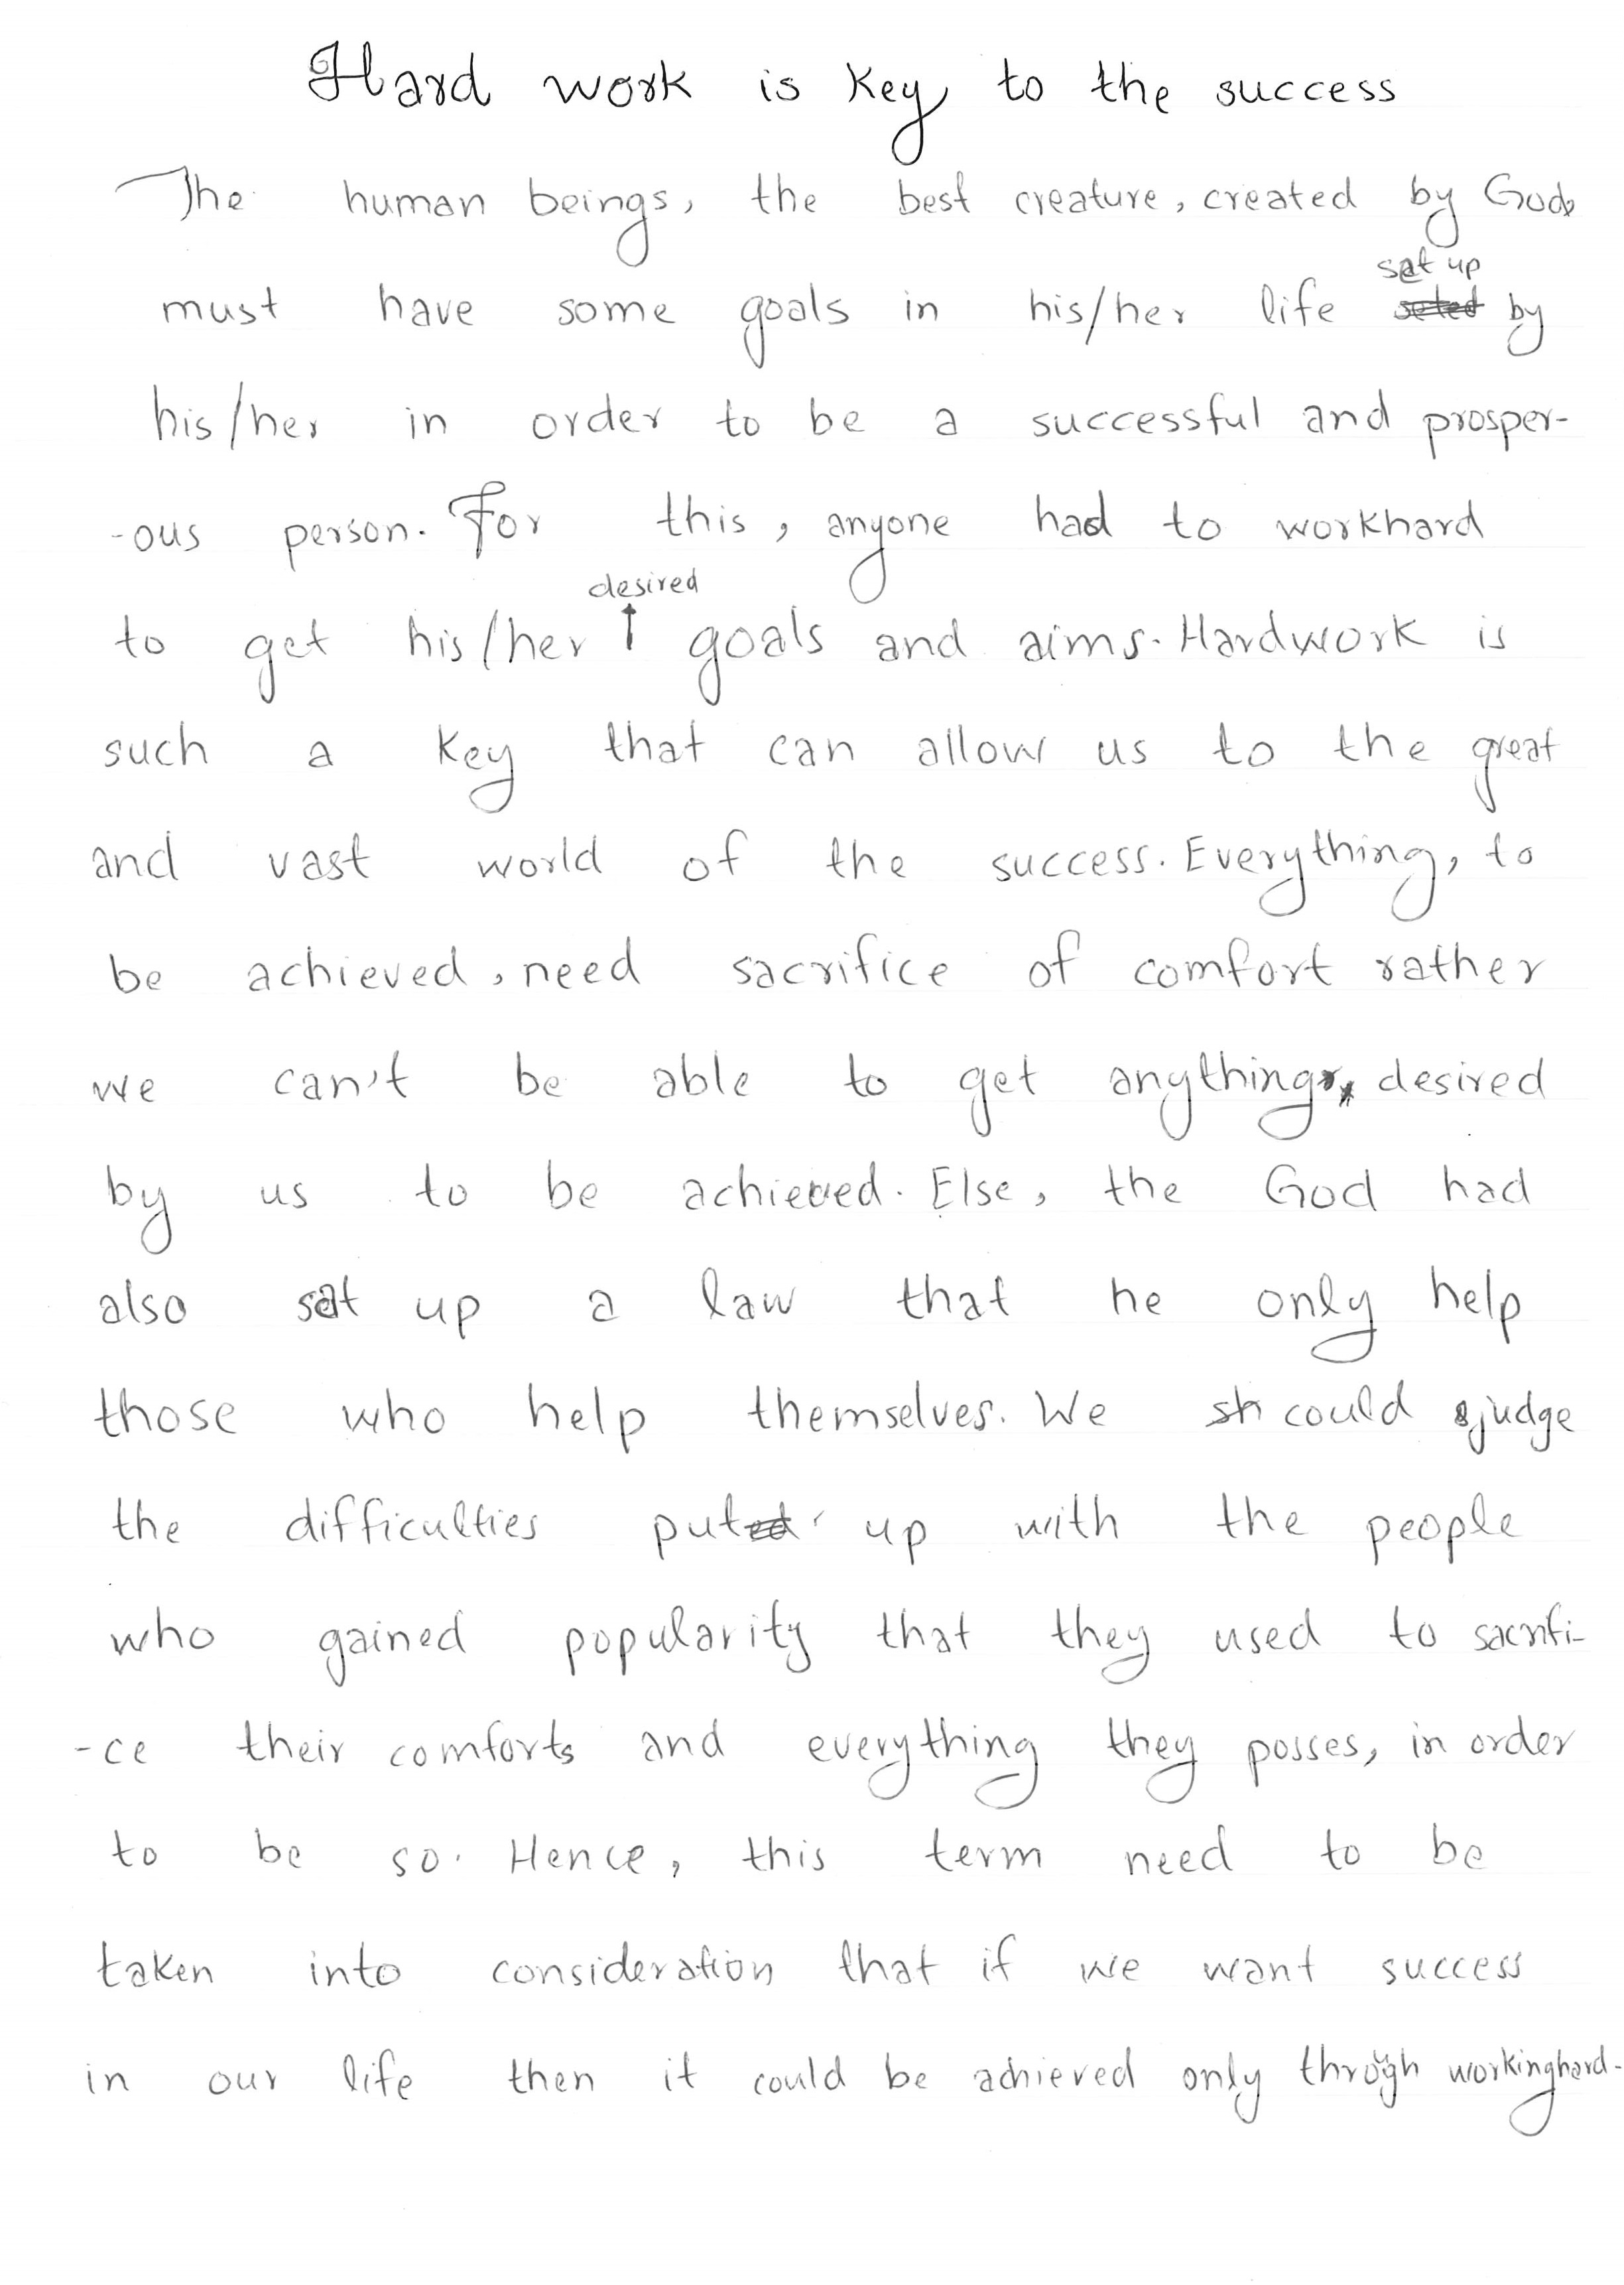 Hard work is Key to the success
The human beings, the best creature, created by God,
must have some goals in his/her life set up by
his/her in order to be a successful and prosper-
-ous person. For this, anyone had to workhard
to get his/her desired goals and aims. Hardwork is
such a key that can allow us to the great
and vast world of the success. Everything, to
be achieved, need sacrifice of comfort rather
we can't be able to get anything, desired
by us to be achieved. Else, the God had
also set up a law that he only help
those who help themselves. We could judge
the difficulties put up with the people
who gained popularity that they used to sacrifi-
-ce their comforts and everything they posses, in order
to be so. Hence, this term need to be
taken into consideration that if we want success
in our life then it could be achieved only through workinghard.